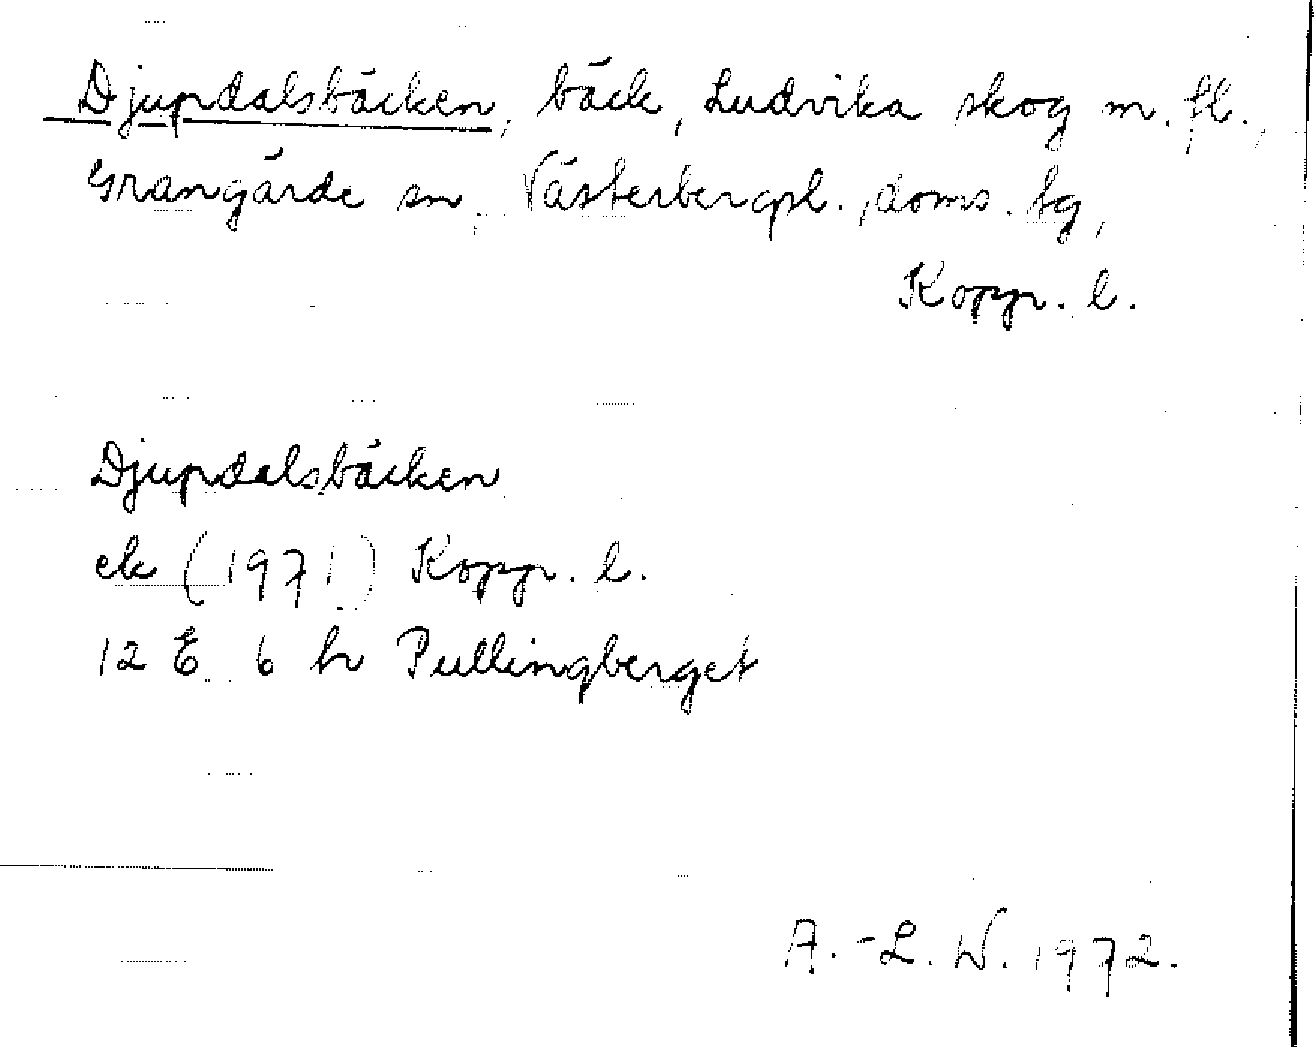 Djupdalsbäcken, bäck, Ludvika skog m. fl.,
Grangärde sn, Västerbergsl. doms. tg,
Koppr. l.
Djupdalsbäcken
ek (1971) Koppr. l.
12 E 6 h Pullingberget
A.-L. W. 1972.